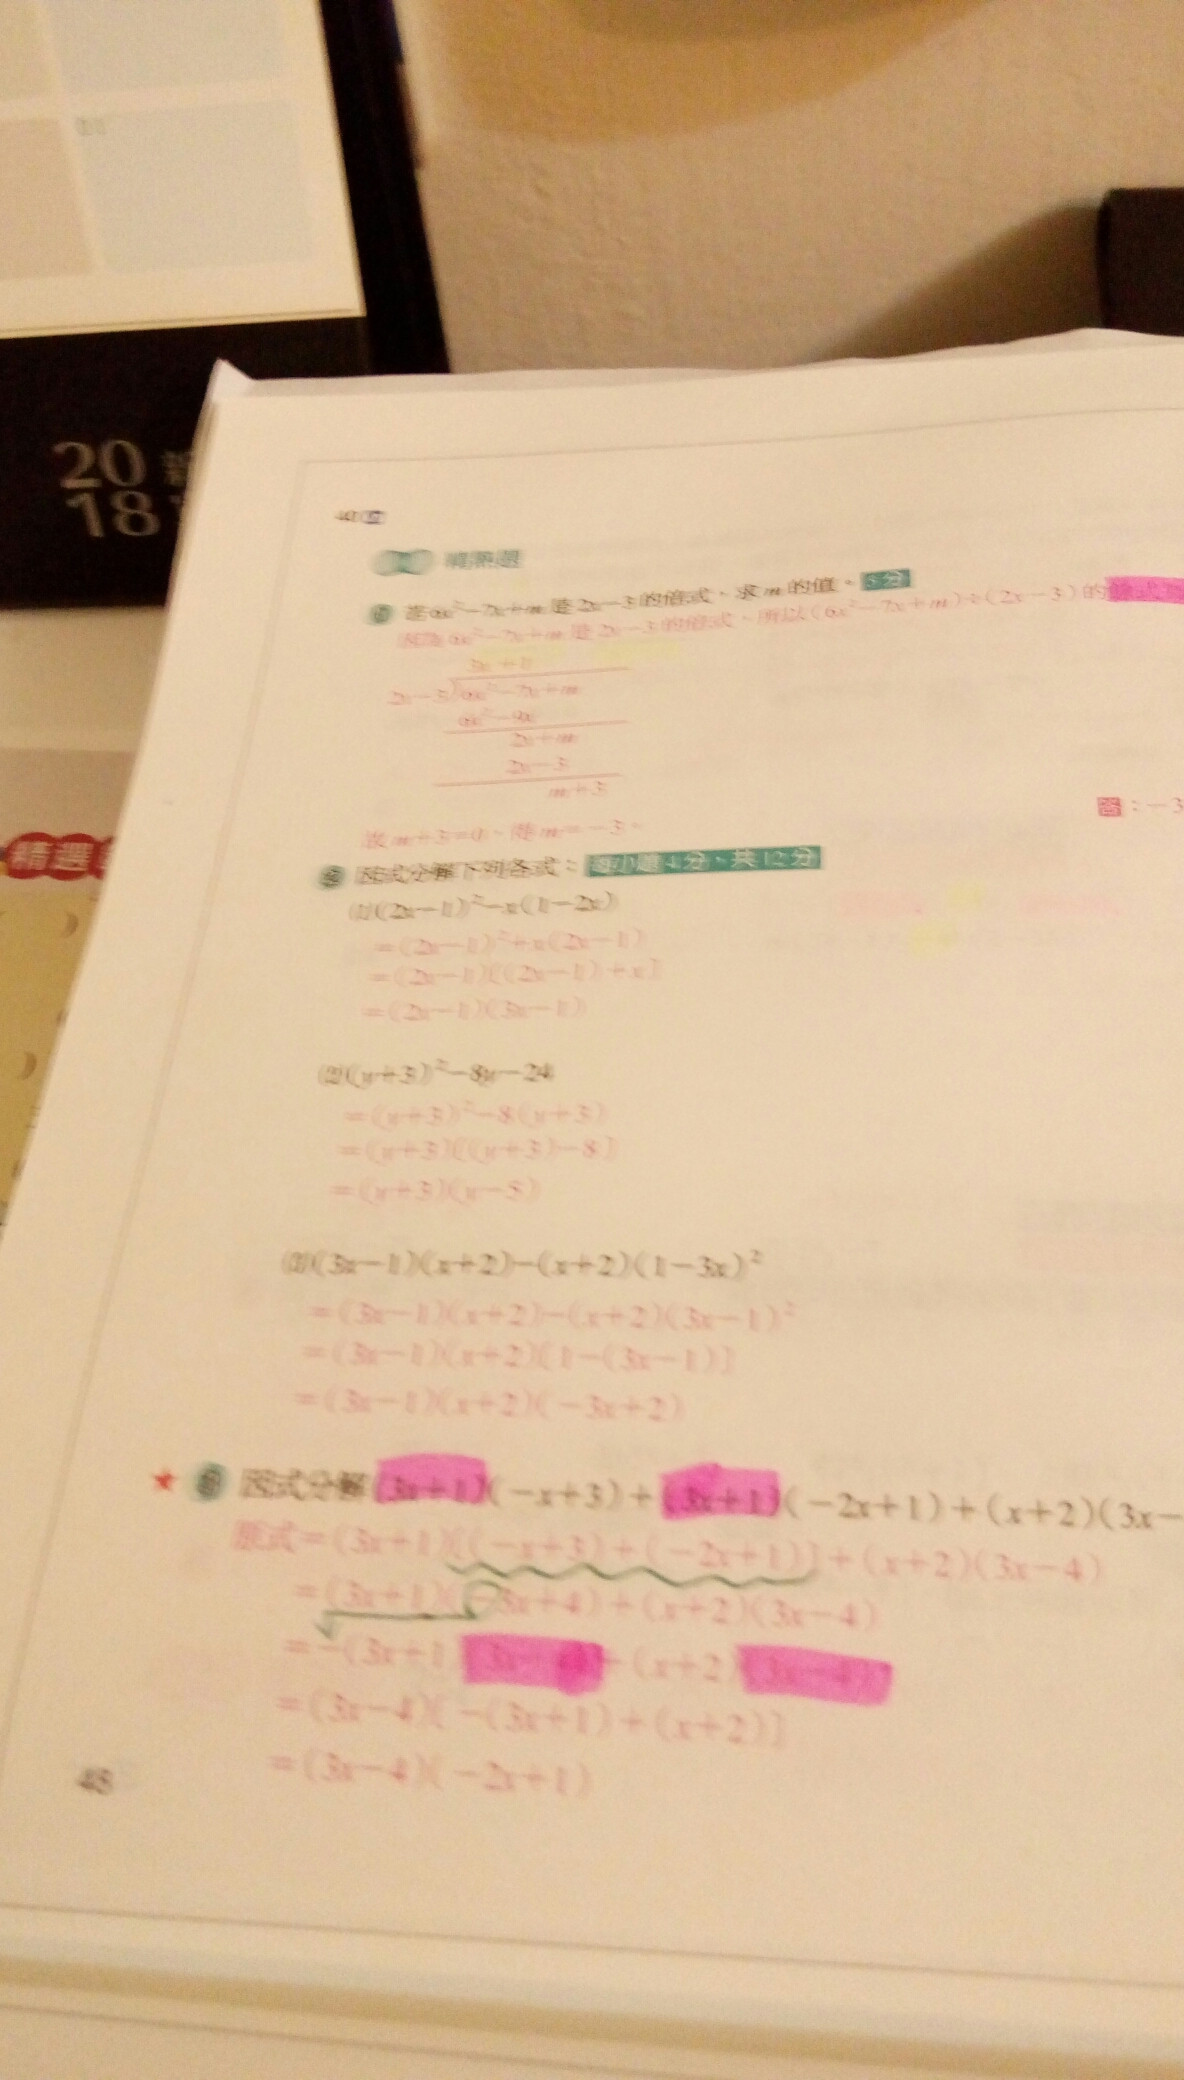 11
20
18
精選
精熟題
若6x²-7x+m是2x-3的倍式，求m的值。5分
因為6x²-7x+m是2x-3的倍式，所以(6x²-7x+m)÷(2x-3)的
3x+1
2x-3 6x²-7x+m
6x²-9x
2x+m
2x-3
m+3
故m+3=0，得m=-3。
答：-3
因式分解下列各式：每小題4分，共12分
(1)(2x-1)²-x(1-2x)
=(2x-1)²+x(2x-1)
=(2x-1)[(2x-1)+x]
=(2x-1)(3x-1)
(2)(x+3)²-8x-24
=(x+3)²-8(x+3)
=(x+3)[(x+3)-8]
=(x+3)(x-5)
(3)(3x-1)(x+2)-(x+2)(1-3x)²
=(3x-1)(x+2)-(x+2)(3x-1)²
=(3x-1)(x+2)[1-(3x-1)]
=(3x-1)(x+2)(-3x+2)
★ 因式分解(3x+1)(-x+3)+(3x+1)(-2x+1)+(x+2)(3x-
原式=(3x+1)[(-x+3)+(-2x+1)]+(x+2)(3x-4)
=(3x+1)(-3x+4)+(x+2)(3x-4)
=-(3x+1)(3x-4)+(x+2)(3x-4)
=(3x-4)[-(3x+1)+(x+2)]
=(3x-4)(-2x+1)
48